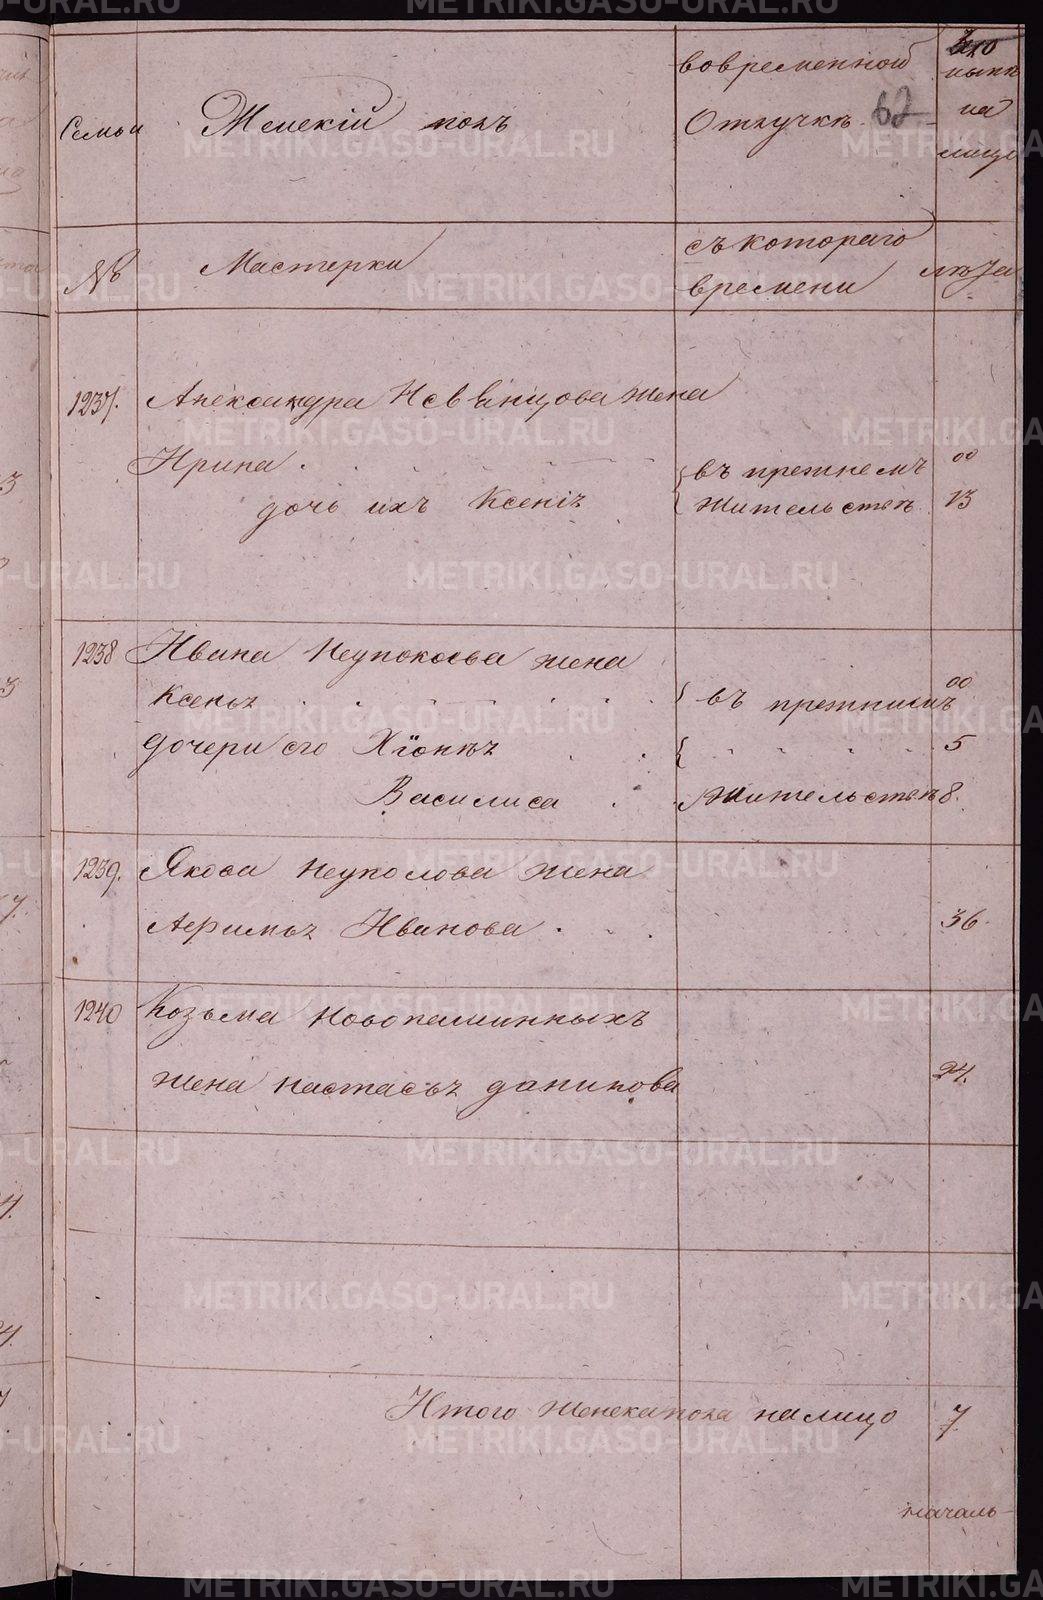 Семьи
Женскій полъ
вовременной
Отлучкѣ
62
ныне
на
лицо
№
Мастерки
съ котораго
времени
лѣта
1237.
Александра Невянцова жена
Ирина
въ прежнемъ
00
дочь ихъ Ксенія
жительствѣ
13
1238
Ивана Неупокоева жена
Ксенья
въ прежнемъ
00
дочери его Хіонья
5
Василиса
жительствѣ
8.
1239.
Якова жена
Афимья Иванова
36.
1240
Козьма Новопашинныхъ
жена настасья данилова
24.
Итого женска пола налицо
7
началь-
METRIKI.GASO-URAL.RU